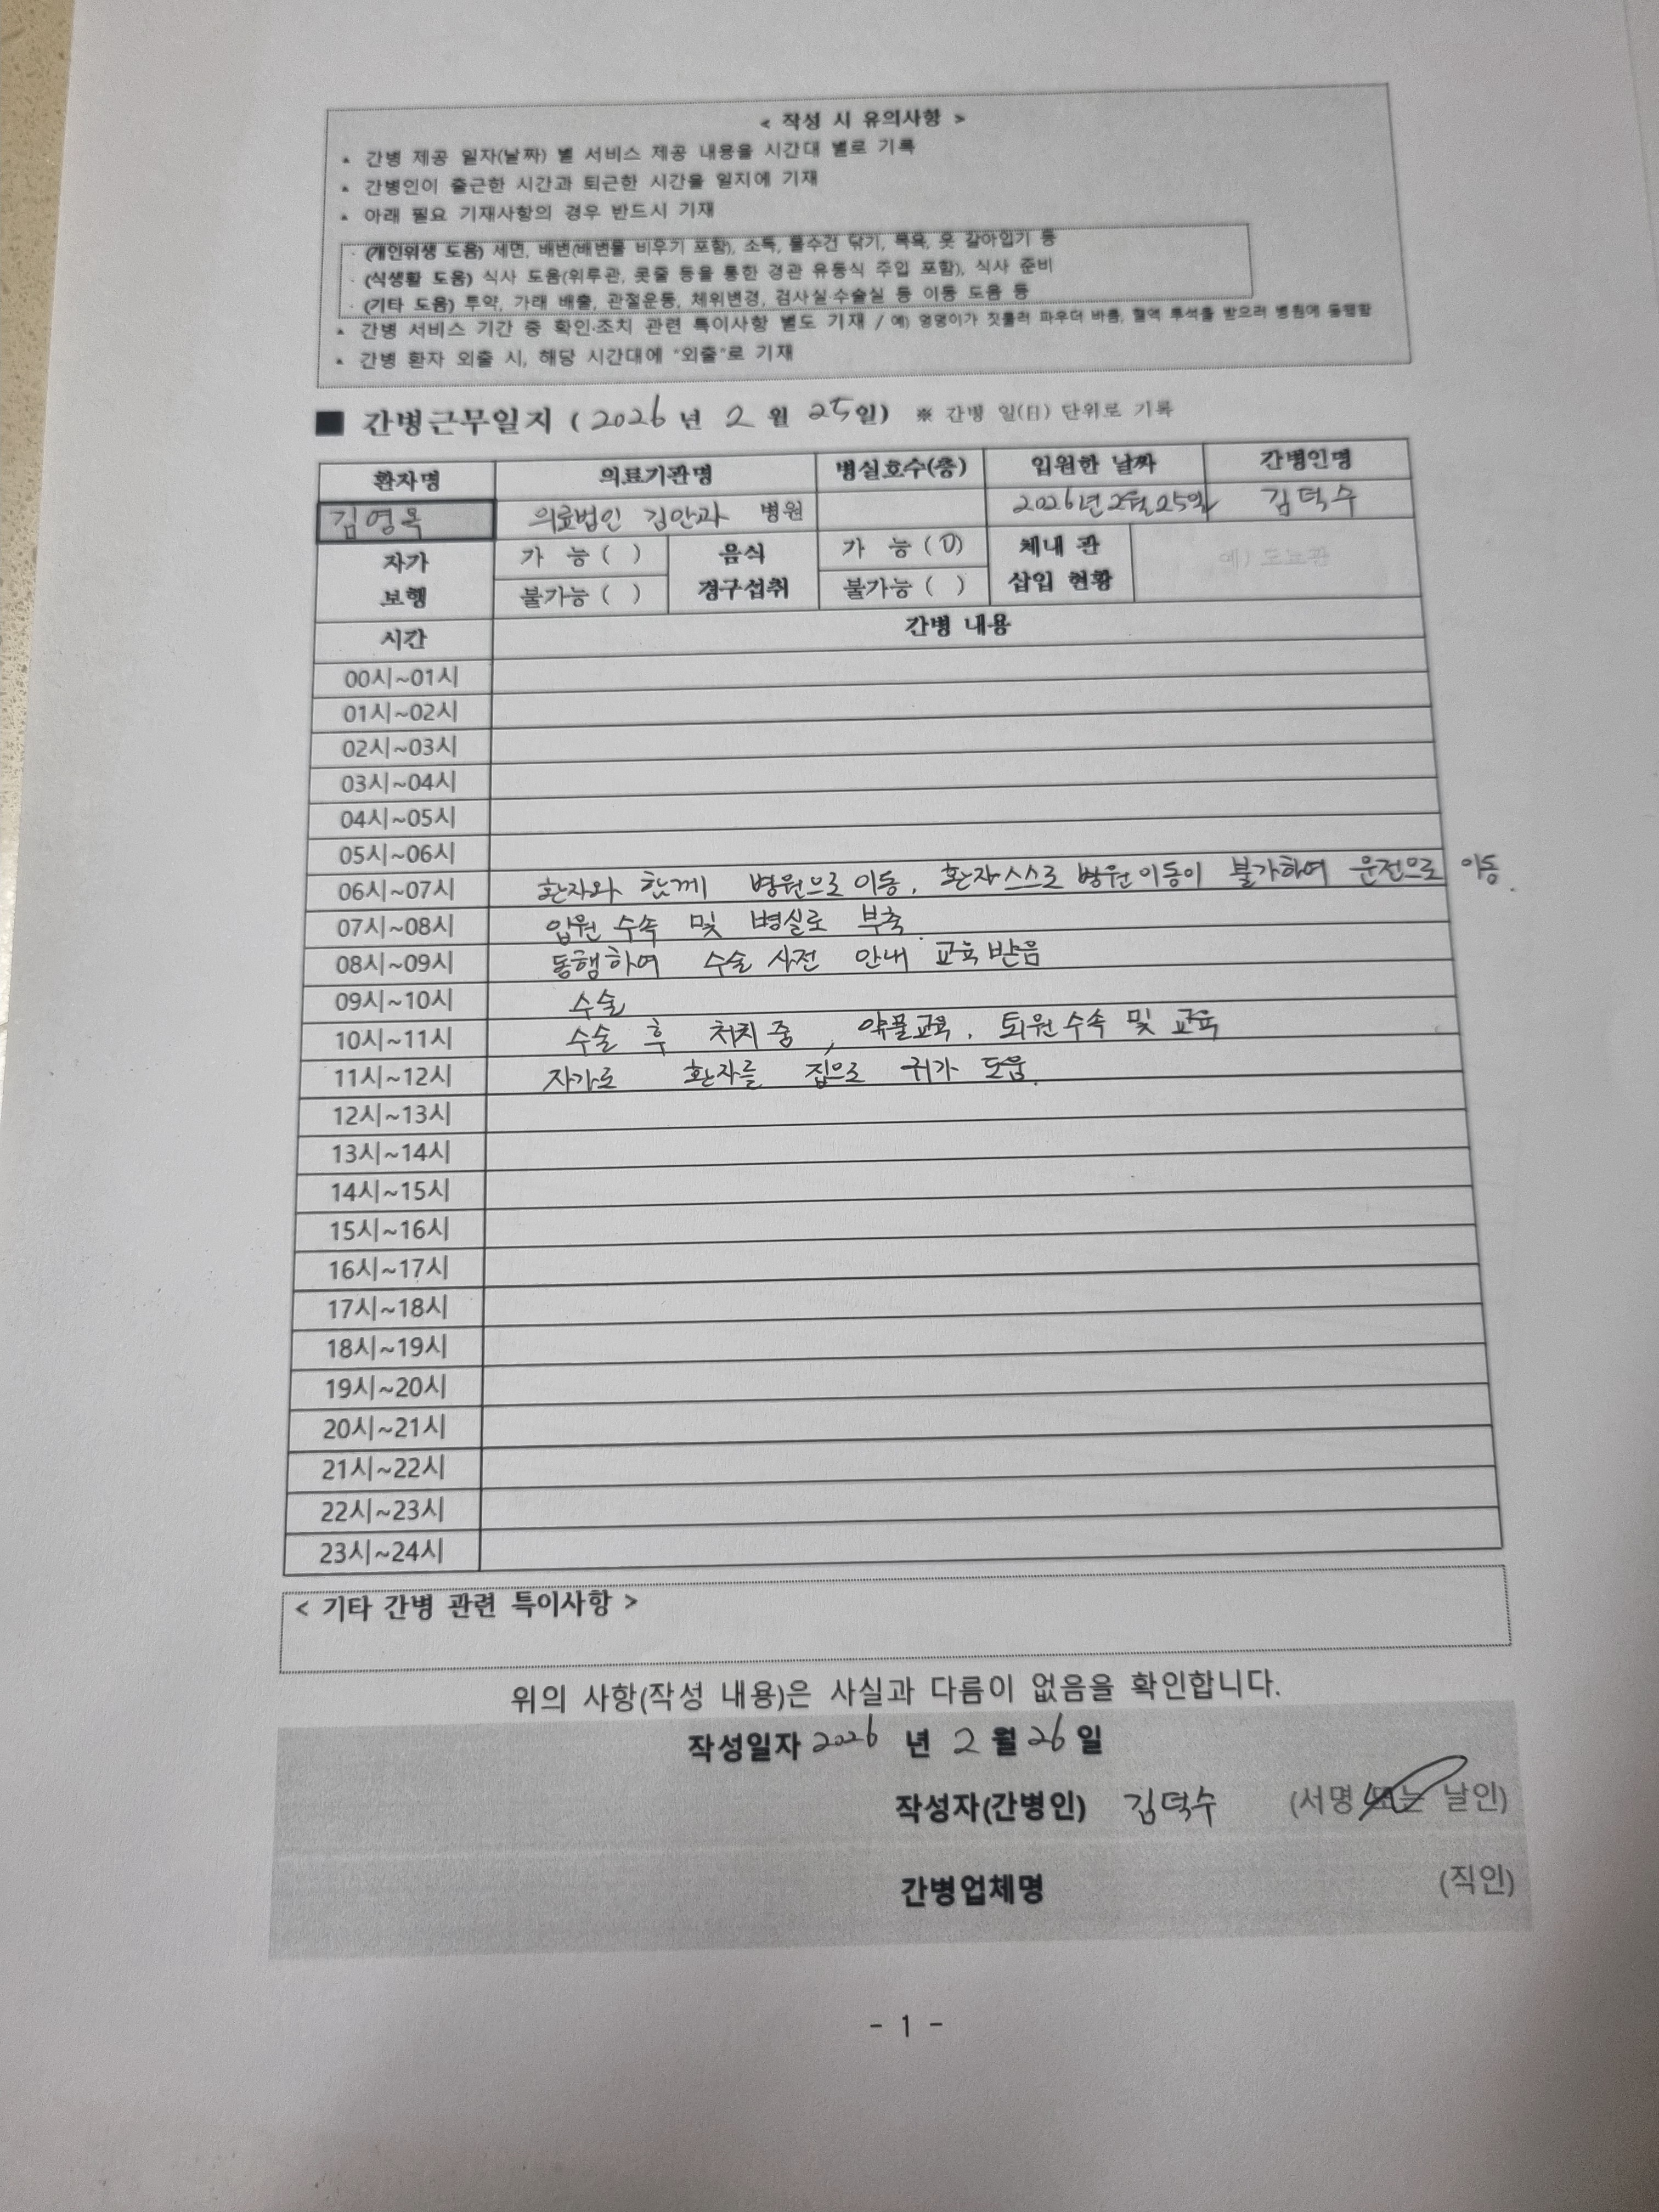 < 작성 시 유의사항 >
▲ 간병 제공 일자(날짜) 별 서비스 제공 내용을 시간대 별로 기록
▲ 간병인이 출근한 시간과 퇴근한 시간을 일지에 기재
▲ 아래 필요 기재사항의 경우 반드시 기재
· (개인위생 도움) 세면, 배변(배변물 비우기 포함), 소독, 물수건 닦기, 목욕, 옷 갈아입기 등
· (식생활 도움) 식사 도움(위루관, 콧줄 등을 통한 경관 유동식 주입 포함), 식사 준비
· (기타 도움) 투약, 가래 배출, 관절운동, 체위변경, 검사실·수술실 등 이동 도움 등
▲ 간병 서비스 기간 중 확인·조치 관련 특이사항 별도 기재 / 예) 엉덩이가 짓물러 파우더 바름, 혈액 투석을 받으러 병원에 동행함
▲ 간병 환자 외출 시, 해당 시간대에 "외출"로 기재
■ 간병근무일지 ( 2026 년 2 월 25일) ※ 간병 일(日) 단위로 기록
환자명 의료기관명 병실호수(층) 입원한 날짜 간병인명
김영옥 의료법인 김안과 병원 2026년 2월 25일 김덕수
자가 보행 가 능 ( ) 불가능 ( ) 음식 경구섭취 가 능 (O) 불가능 ( ) 체내 관 삽입 현황 예) 도뇨관
시간 간병 내용
00시~01시
01시~02시
02시~03시
03시~04시
04시~05시
05시~06시
06시~07시 환자와 함께 병원으로 이동, 환자스스로 병원이동이 불가하여 운전으로 이동.
07시~08시 입원 수속 및 병실로 부축
08시~09시 동행하여 수술 사전 안내 교육 받음
09시~10시 수술
10시~11시 수술 후 처치 중, 약물교육, 퇴원수속 및 교육
11시~12시 자가로 환자를 집으로 귀가 도움.
12시~13시
13시~14시
14시~15시
15시~16시
16시~17시
17시~18시
18시~19시
19시~20시
20시~21시
21시~22시
22시~23시
23시~24시
< 기타 간병 관련 특이사항 >
위의 사항(작성 내용)은 사실과 다름이 없음을 확인합니다.
작성일자 2026 년 2 월 26 일
작성자(간병인) 김덕수 (서명 또는 날인)
간병업체명 (직인)
- 1 -